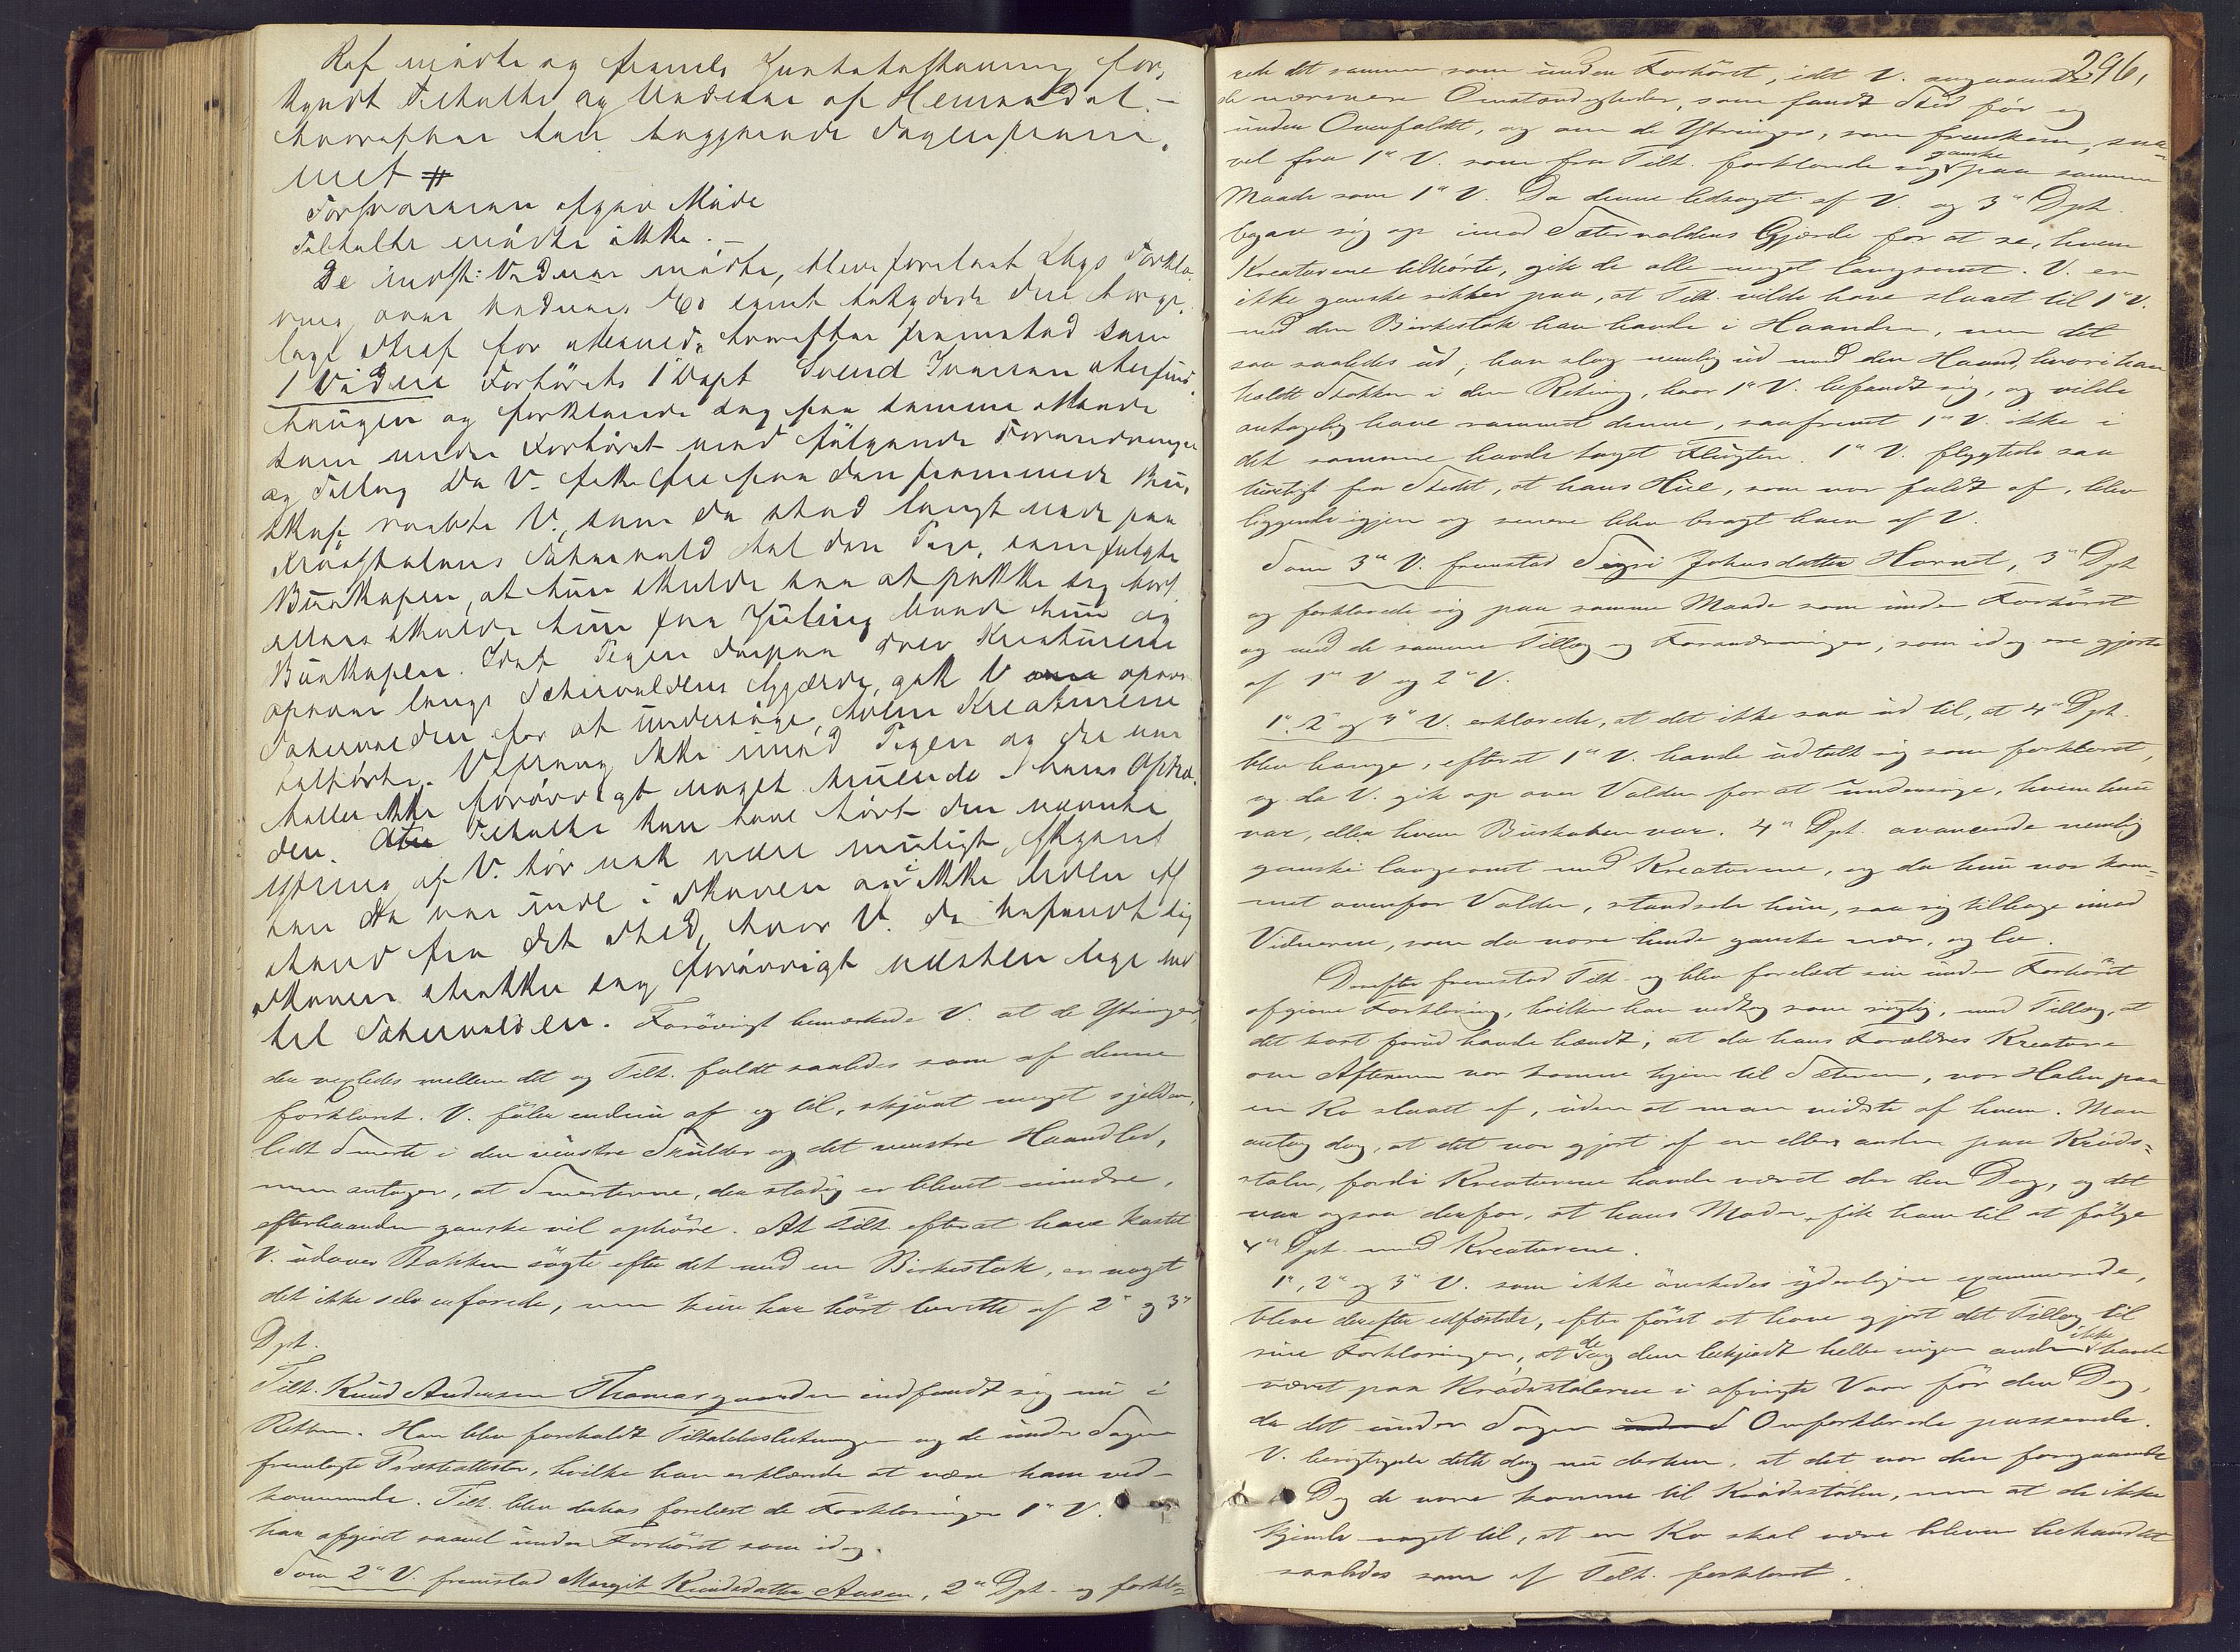 Ref mødte og fremla
kyndt Tiltalte og Vidnerne af Hemsedal. —
hvorefter han begjærede Sagen frem-
met #
Forsvareren afgav Møde
Tiltalte mødte ikke. —
De indst: Vidner mødte, bleve forelæst Lags Forkla
ring over Vidners Ed samt betydede den borger-
lige Straf for Meened, hvorefter fremstod som
1 Vidne Forhørets 1 Dept Svend Iversen
haugen og forklarede sig paa samme Maade
som under Forhøret med følgende Forandringer
og Tillæg Da V. fik se paa den fremmede Bu-
skap raabte V., som da stod langt nede paa
Krødstølens Sætervold til den Pige, som fulgte
Buskapen, at hun skulde see at pakke sig bort
ellers skulde hun faa Juling baade hun og
Buskapen. Idet Pigen derpaa drev Kreaturene
opover langs Sætervoldens Gjærde, gik V opover
Sætervolden for at undersøge, hvem Kreaturene
tilhørte. V sprang ikke imod Pigen og der var
heller ikke forøvrigt noget truende i hans Optræ-
den. At Tiltalte kan have hørt den nævnte
Yttring af V. tør nok være muligt, skjønt
han da var inde i Skoven og ikke lidet Af
stand fra det Sted, hvor V. da befandt sig
Skoven strækker sig forøvrigt næsten lige ned
til Sætervolden. Forøvrigt bemærkede V. at de Yttringer,
der vexledes mellem det og Tilt. faldt saaledes som af denne
forklaret. V. føler endnu af og til, skjønt meget sjelden,
lidt Smerte i den venstre Skulder og det venstre Haandled,
men antager, at Smerterne, der stadig er blevet mindre,
efterhaanden ganske vil ophøre. At Tilt. efter at have kastet
V. udover Bakken søgte efter det med en Birkestok, er noget
det ikke selv erfarede, men kun har hørt berette af 2n og 3n
Dpt.
Tilt. Knud Andersen Thomasgaarden indfandt sig nu i
Retten. Han blev foreholdt Tiltalebeslutningen og de under Sagen
fremlagte Præsteattester, hvilke han erklærede at være ham ved-
kommende. Tilt. blev derhos forelæst de Forklaringer 1n V.
har afgivet saavel under Forhøret som idag.
Som 2n V. fremstod Margit Knudsdatter Aasen, 2n Dpt. og forkla-
296,
rede det samme som under Forhøret, idet V. angaaende
de nærmere Omstændigheder, som fandt Sted før og
under Overfaldet, og om de Yttringer, som fremkom, saa-
vel fra 1n V. som fra Tilt. forklarede sig ganske paa samme
Maade som 1n V. Da denne ledsaget af V. og 3n Dpt.
begav sig op imod Sætervoldens Gjærde for at se, hvem
Kreaturene tilhørte, gik de alle meget langsomt. V. er
ikke ganske sikker paa, at Tilt. vilde have slaaet til 1n V.
med den Birkestok han havde i Haanden, men det
saa saaledes ud; han slog nemlig ud med den Haand, hvori han
holdt Stokken i den Retning, hvor 1n V. befandt sig, og vilde
antagelig have rammet denne, saafremt 1n V. ikke i
det samme havde taget Flugten. 1n V. flygtede saa
hurtigt fra Stedet, at hans Hue, som var faldt af, blev
liggende igjen og senere blev bragt ham af V.
Som 3n V. fremstod Sigri Johnsdatter Hornet, 3n Dpt
og forklarede sig paa samme Maade som under Forhøret
og med de samme Tillæg og Forandringer, som idag ere gjorte
af 1n V og 2n V.
1n 2n og 3n V. erklærede, at det ikke saa ud til, at 4n Dpt.
blev bange, efterat 1n V. havde udtalt sig som forklaret,
og da V. gik op over Volden for at undersøge, hvem hun
var, eller hvem Buskaben var. 4n Dpt. avancerede nemlig
ganske langsomt med Kreaturene, og da hun var kom-
met ovenfor Volden, standsede hun, saa sig tilbage imod
Vidnerne, som da vare hende ganske nær, og lo.
Derefter fremstod Tilt. og blev forelæst sin under Forhøret
afgivne Forklaring, hvilken han vedtog som rigtig, med Tillæg, at
det kort forud havde hændt, at da hans Forældres Kreature
om Aftenen var komne hjem til Sæteren, var Halen paa
en Ko slaaet af, uden at man vidste af hvem. Man
antog dog, at det var gjort af en eller anden paa Krøds-
stølen, fordi Kreaturene havde været der den Dag, og det
var ogsaa derfor, at hans Moder fik ham til at følge
4n Dpt. med Kreaturene.
1n, 2n og 3n V. som ikke ønskedes yderligere examinerede,
bleve derefter edfæstede, efter først at have gjort det Tillæg til
sine Forklaringer, at de og dem bekjendt heller ingen anden ikke havde
været paa Krødsstølerne i afvigte Vaar før den Dag,
da det under Sagen Omforklarede passerede.
V. berigtigede dette dog nu derhen, at det var den foregaaende
Dag de vare komne til Krødsstølen, men at de ikke
kjende noget til, at en Ko skal være bleven behandlet
saaledes som af Tilt. forklaret.